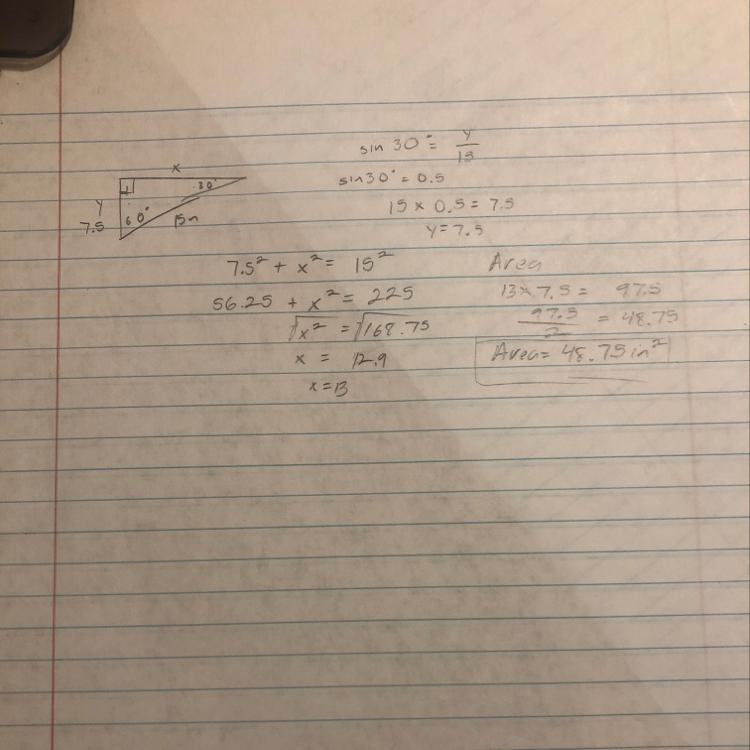 x
30°
y
7.5
60°
15in
sin 30° = y/15
sin30° = 0.5
15 × 0.5 = 7.5
y = 7.5
7.5² + x² = 15²
56.25 + x² = 225
√x² = √168.75
x = 12.9
x = 13
Area
13 × 7.5 = 97.5
97.5/2 = 48.75
Area = 48.75 in²